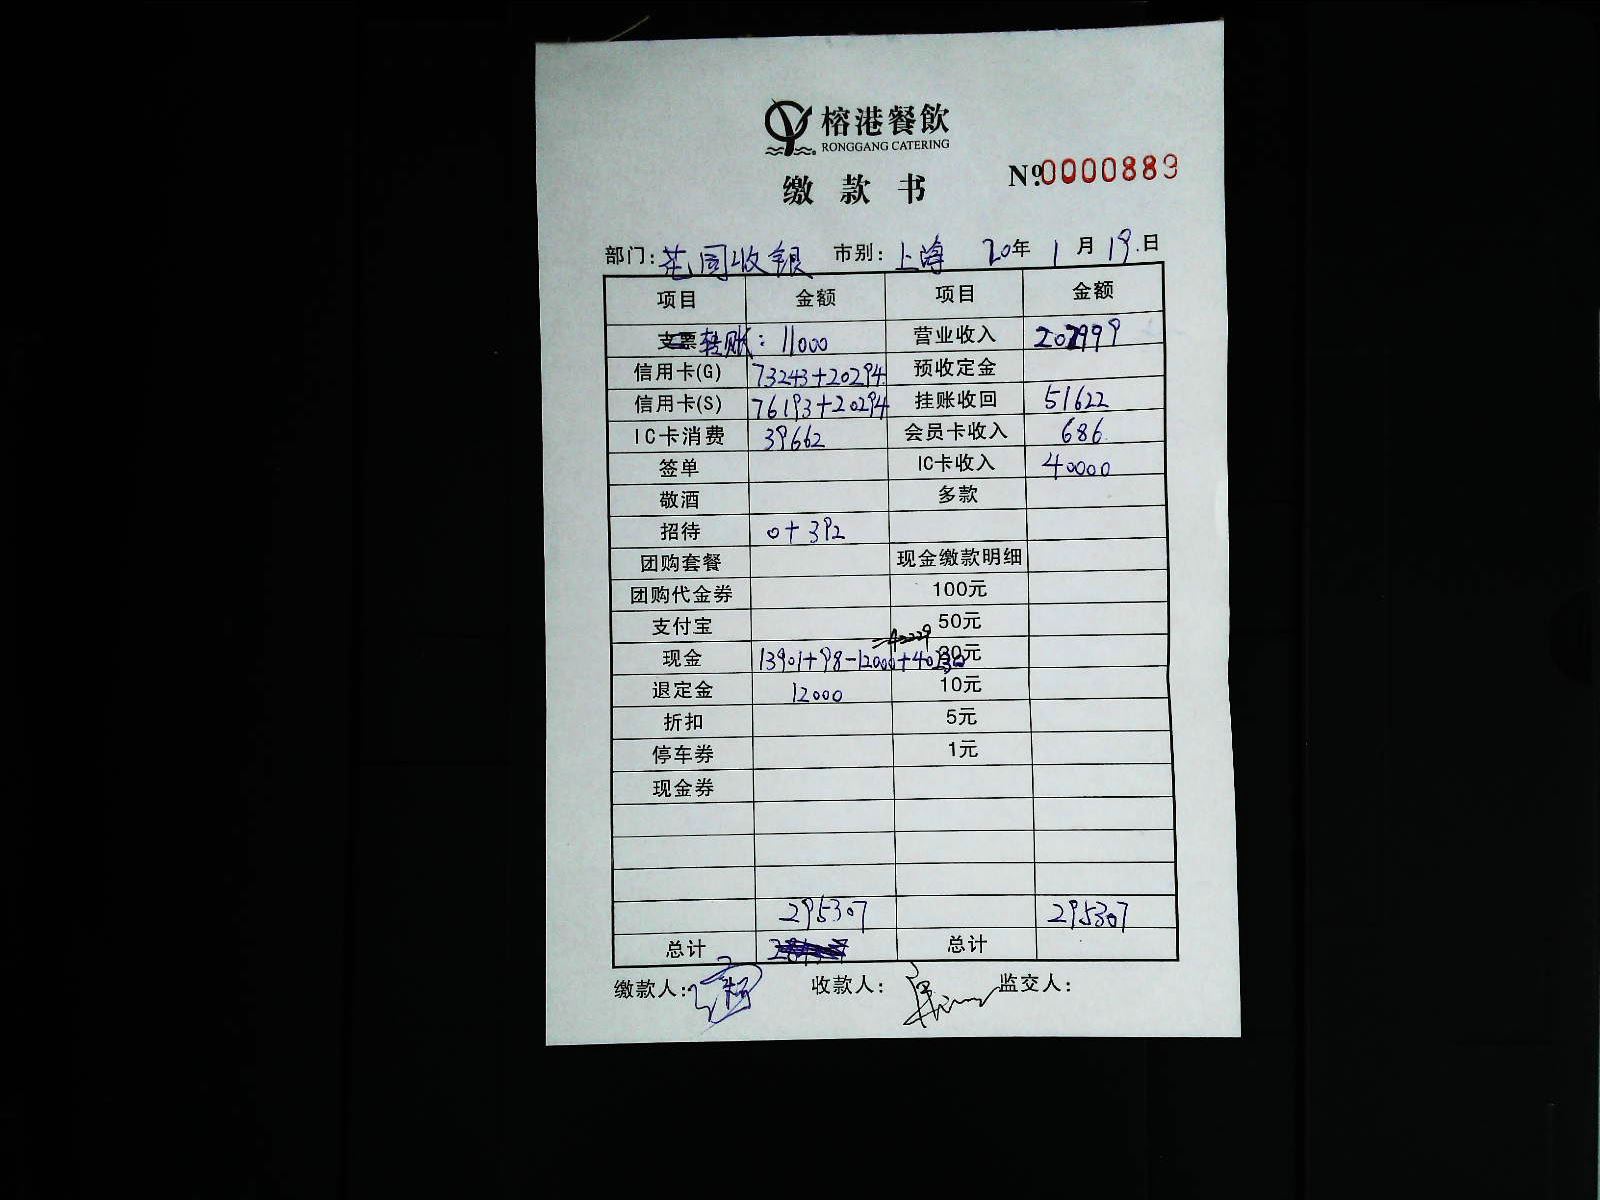 榕港餐飲
RONGGANG CATERING
缴款书
№0000889
部门:花园收银 市别:上海 20年1月19日
项目 金额 项目 金额
支票 转账:11000 营业收入 202999
信用卡(G) 73243+20294 预收定金
信用卡(S) 76193+20294 挂账收回 51622
IC卡消费 39662 会员卡收入 686
签单 IC卡收入 40000
敬酒 多款
招待 0+392
团购套餐 现金缴款明细
团购代金券 100元
支付宝 50元
=42229
现金 13901+98-12000+40230 20元
退定金 12000 10元
折扣 5元
停车券 1元
现金券
295307 295307
总计 总计
缴款人: 收款人: 监交人: